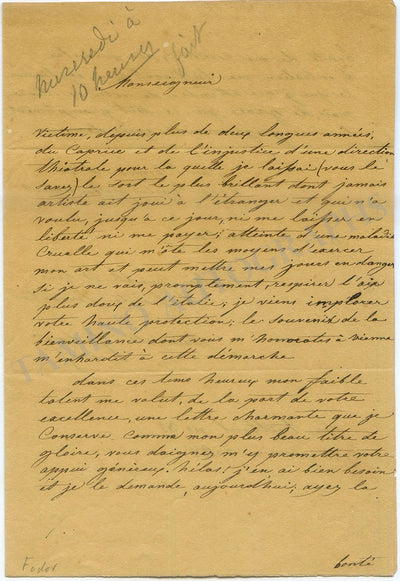 mercredi à
10 heures
fait
Monseigneur
Victime, depuis plus de deux longues années,
du Caprice et de l'injustice d'une direction
théatrale pour la quelle je laissai (vous le
savez) le sort le plus brillant dont jamais
artiste ait joui à l'étranger et qui n'a
voulu, jusqu'à ce jour, ni me laisser en
liberté ni me payer; atteinte d'une maladie
Cruelle qui m'ôte les moyens d'exercer
mon art et peut mettre mes jours en danger
si je ne vais, promptement, respirer l'air
plus doux de l'italie; je viens implorer
votre haute protection; le souvenir de la
bienveillance dont vous m'honorates à vienne
m'enhardit à cette démarche.
dans ces tems heureux mon faible
talent me valut, de la part de votre
excellence, une lettre charmante que je
Conserve Comme mon plus beau titre de
gloire, vous daignez m'y promettre votre
appui généreux. hélas! j'en ai bien besoin
et je le demande, aujourd'hui; ayez la
bonté
Fodor